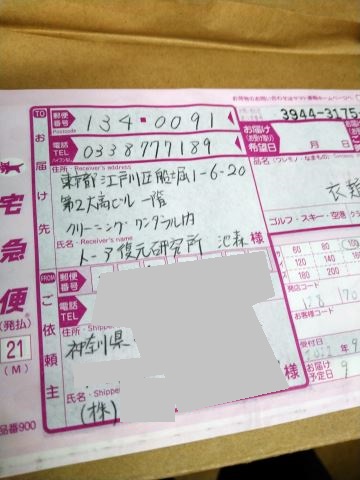 お荷物のお問い合わせはヤマト運輸ホームページへ
3944-3175-
TO
お届け先
郵便番号
Postcode
134-0091
電話
TEL
0338777189
住所・Receiver's address
東京都江戸川区船堀1-6-20
第2大高ビル 一階
クリーニング ワンダフル内
氏名・Receiver's name
トーア復元研究所 池森 様
お届け
(お受け取り)
希望日
月 日
品名(ワレモノ・なまもの)
衣類
ゴルフ・スキー・空港
宅急便
(発払)
21
(M)
FROM
ご依頼主
郵便番号
電話
TEL
住所・Shippe
神奈川県
氏名・Shippe
(株)
様
60
80
100
120
140
160
180
200
発店コード
128 170
お客様コード
受付日
お届け
予定日
9
品番900